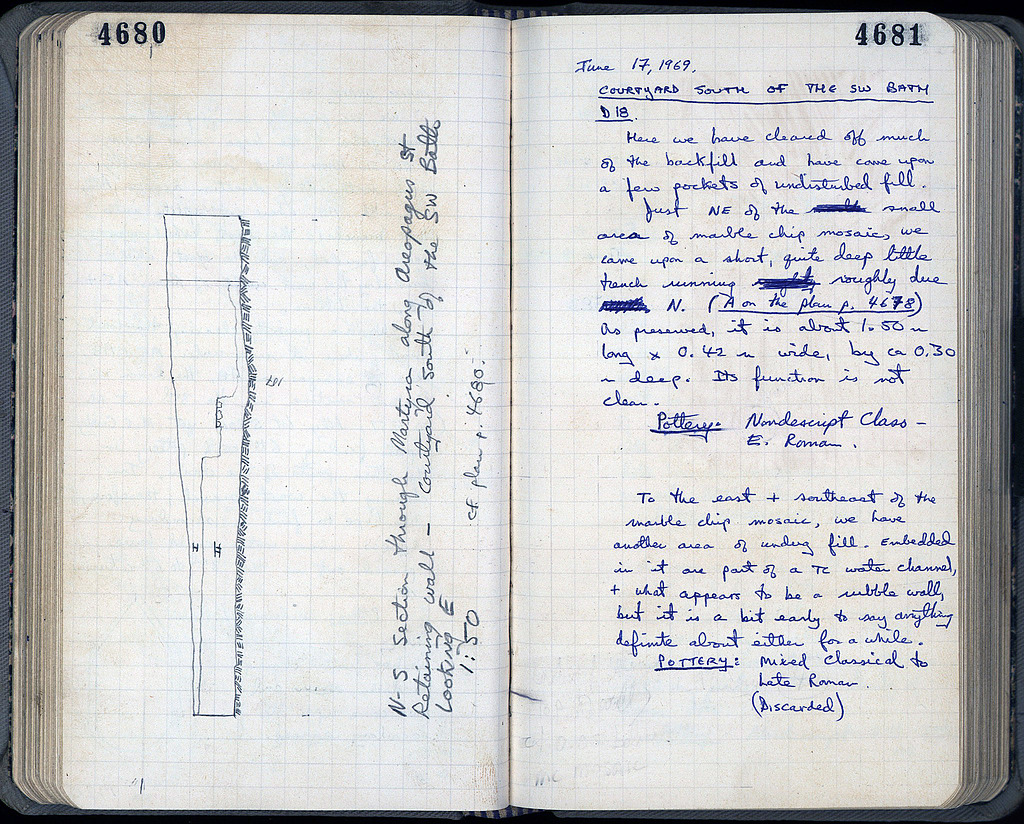 4680
N-S Section through Martyra along Areopagus St
Retaining wall - Courtyard South of the SW Baths
Looking E
1:50
cf. plan p. 4680.
I
II
4681
June 17, 1969.
COURTYARD SOUTH OF THE SW BATH
D 18.
Here we have cleared off much
of the backfill and have come upon
a few pockets of undisturbed fill.
Just NE of the small
area of marble chip mosaic, we
came upon a short, quite deep little
trench running roughly due
N. (A on the plan p. 4678)
As preserved, it is about 1.50 m
long x 0.42 m wide, by ca 0.30
m deep. Its function is not
clear.
Pottery: Nondescript Class -
E. Roman.
To the east + southeast of the
marble chip mosaic, we have
another area of undug fill. Embedded
in it are part of a TC water channel,
+ what appears to be a rubble wall,
but it is a bit early to say anything
definite about either for a while.
POTTERY: Mixed Classical to
Late Roman.
(Discarded)